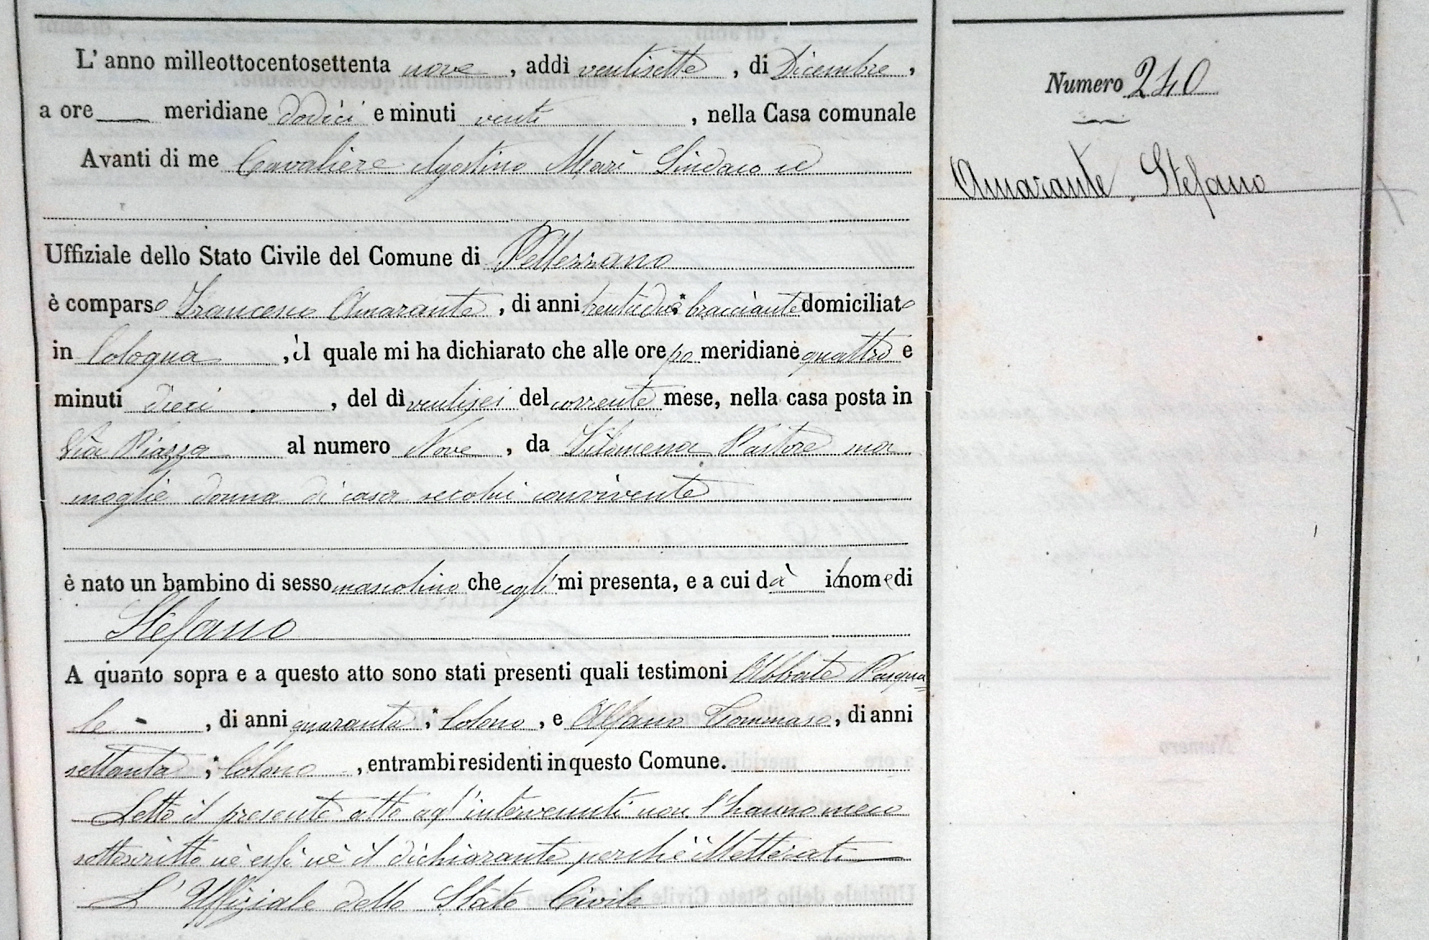 L' anno milleottocentosettenta nove, addì ventisette, di Dicembre,
a ore meridiane dodici e minuti venti, nella Casa comunale
Avanti di me Cavaliere Agostino Mari Sindaco ed
Uffiziale dello Stato Civile del Comune di Pellezzano
è comparso Francesco Amarante, di anni ventidue bracciante domiciliato
in Cologna, il quale mi ha dichiarato che alle ore po meridiane quattro e
minuti dieci, del dì ventisei del corrente mese, nella casa posta in
Via Piazza al numero Nove, da Filomena Pastore sua
moglie donna di casa secolui convivente
è nato un bambino di sesso mascolino che egli mi presenta, e a cui dà il nome di
Stefano
A quanto sopra e a questo atto sono stati presenti quali testimoni Abbate Pasqua=
le, di anni quaranta, colono, e Alfano Tommaso, di anni
settanta, Colono, entrambi residenti in questo Comune.
Letto il presente atto agl' intervenuti non l'hanno meco
sottoscritto nè essi nè il dichiarante perchè illetterati
L' Uffiziale dello Stato Civile
Numero 240
Amarante Stefano